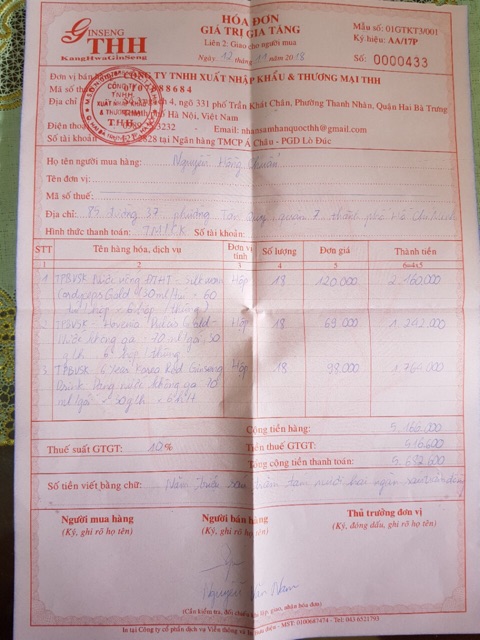 GINSENG
THH
KangHwaGinSeng
HÓA ĐƠN
GIÁ TRỊ GIA TĂNG
Liên 2: Giao cho người mua
Ngày 12 tháng 11 năm 2018
Mẫu số: 01GTKT3/001
Ký hiệu: AA/17P
Số: 0000433
Đơn vị bán CÔNG TY TNHH XUẤT NHẬP KHẨU & THƯƠNG MẠI THH
Mã số thuế 88684
Địa chỉ 4, ngõ 331 phố Trần Khát Chân, Phường Thanh Nhàn, Quận Hai Bà Trưng
phố Hà Nội, Việt Nam
Điện thoại 3232 Email: nhansamhanquocthh@gmail.com
Số tài khoản 2828 tại Ngân hàng TMCP Á Châu - PGD Lò Đúc
CÔNG TY
TNHH
XUẤT NHẬP KHẨU
& THƯƠNG MẠI
THH
Họ tên người mua hàng: Nguyễn Hồng Chuẩn
Tên đơn vị:
Mã số thuế:
Địa chỉ: đường 37, phường Tân Quy, quận 7, thành phố Hồ Chí Minh
Hình thức thanh toán: TM/CK Số tài khoản:
STT Tên hàng hóa, dịch vụ Đơn vị tính Số lượng Đơn giá Thành tiền
1 2 3 4 5 6=4x5
1 TPBVSK Nước uống ĐTHT - Silkworm Hộp 18 120.000 2.160.000
Cordyceps Gold (30ml/túi - 60
túi/hộp - 6 hộp/thùng)
2 TPBVSK - Hovenia Dulcis Gold - Hộp 18 69.000 1.242.000
Nước hồng ga - 70ml/gói, 30
3 TPBVSK 6 Year Korea Red Ginseng Hộp 18 98.000 1.764.000
Drink Dạng nước hồng ga 70
ml/gói - 30 gói
Cộng tiền hàng: 5.166.000
Thuế suất GTGT: 10% Tiền thuế GTGT: 516.600
Tổng cộng tiền thanh toán: 5.682.600
Số tiền viết bằng chữ: Năm triệu sáu trăm tám mươi hai ngàn sáu trăm đồng
Người mua hàng Người bán hàng Thủ trưởng đơn vị
(Ký, ghi rõ họ tên) (Ký, ghi rõ họ tên) (Ký, đóng dấu, ghi rõ họ tên)
Nguyễn Văn Nam
(Cần kiểm tra, đối chiếu khi lập, giao, nhận hóa đơn)
In tại Công ty cổ phần dịch vụ Viễn thông và In Bưu điện - MST: 0100687474 - Tel: 043 6521793